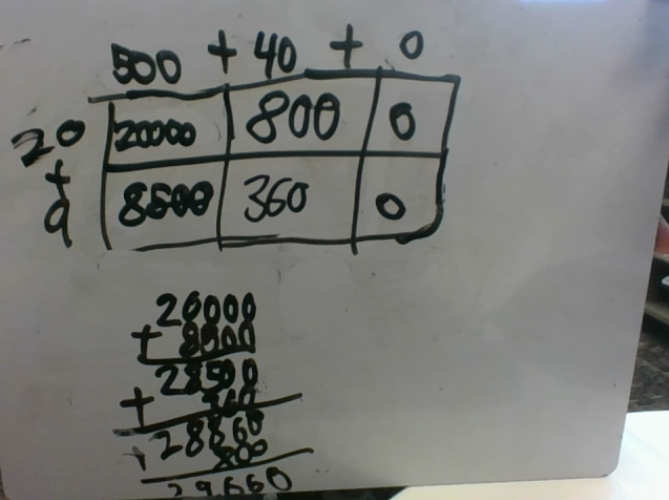 500 + 40 + 0
20 20000 800 0
+
9 8500 360 0
20000
+ 8500
28500
+ 360
28860
800
29,660